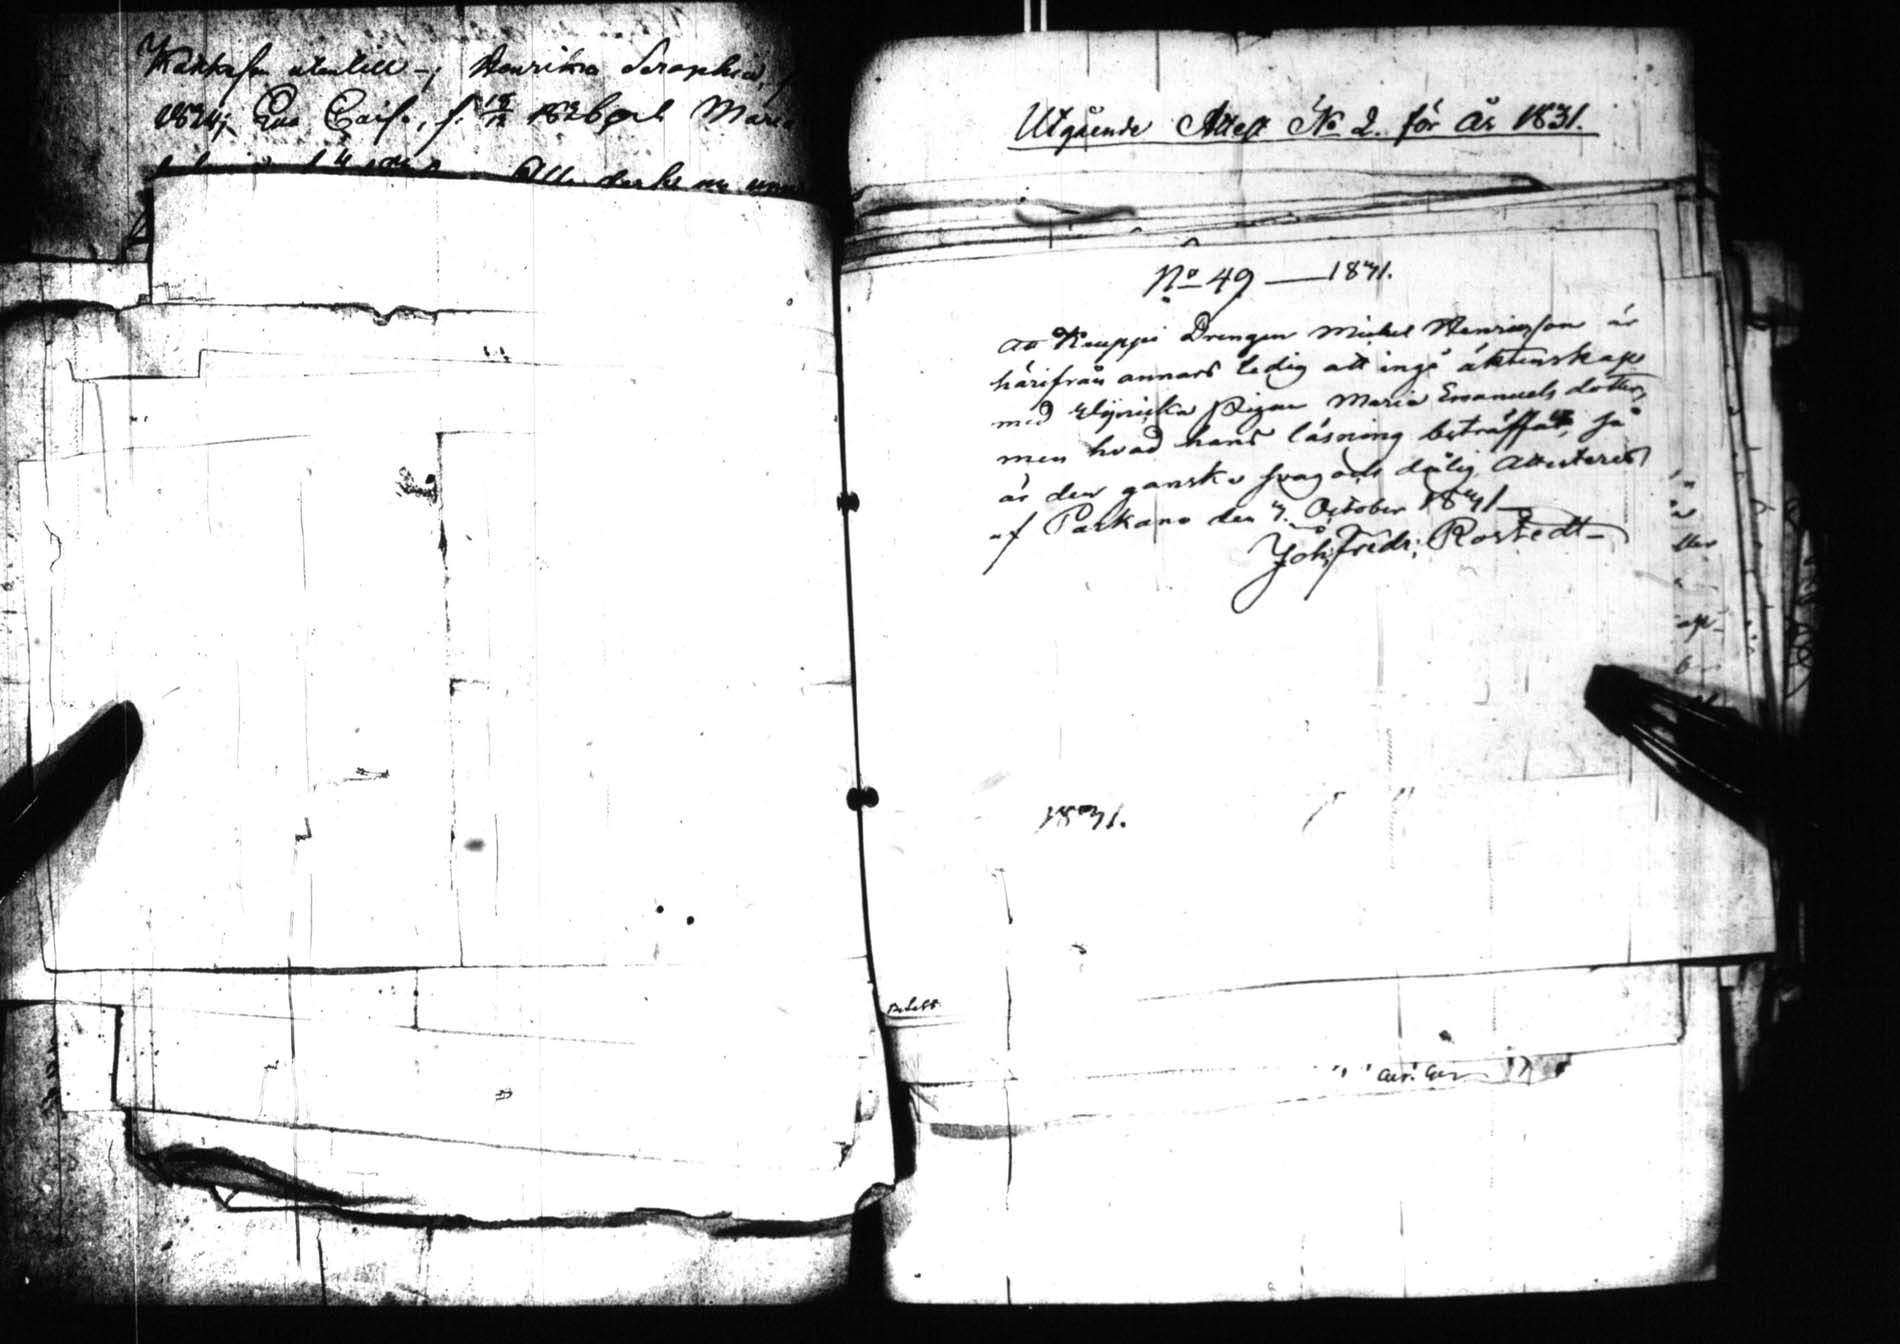 utantill -, Henrika Seraphia,
1824; Eva Cais, f. 18/12 1826 och Maria
Alla
Utgående Attest No 2. för År 1831.
No 49 — 1831.
Att Kauppi Drengen Michel Henricsson är
härifrån annars ledig att ingå äktenskap
med Pigan Maria Emanuels dotter,
men hvad hans läsning beträffar, så
är den ganska svag och dålig, Attesteras
af Parkano den 7. October 1831
Joh. Fredr. Rostedt
1831.